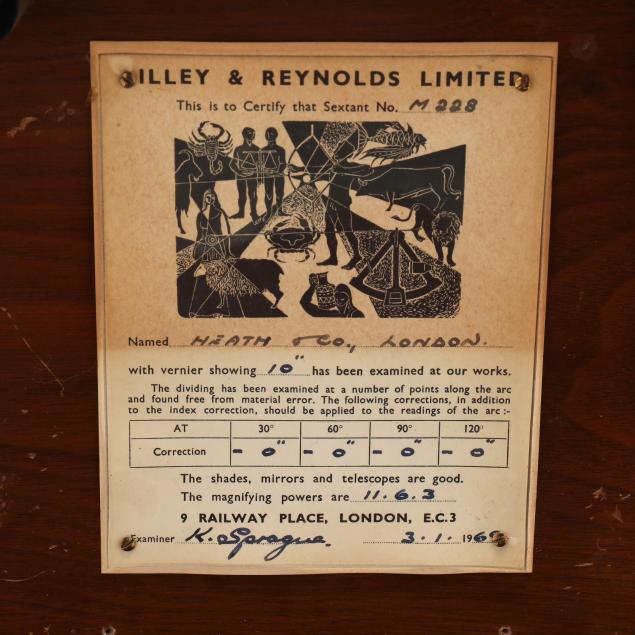 LILLEY & REYNOLDS LIMITED
This is to Certify that Sextant No. M 228
Named HEATH & CO., LONDON.
with vernier showing 10" has been examined at our works.
The dividing has been examined at a number of points along the arc
and found free from material error. The following corrections, in addition
to the index correction, should be applied to the readings of the arc :-
AT 30° 60° 90° 120°
Correction - 0" - 0" - 0" - 0"
The shades, mirrors and telescopes are good.
The magnifying powers are 11.6.3
9 RAILWAY PLACE, LONDON, E.C.3
Examiner K. Sprague. 3.1.